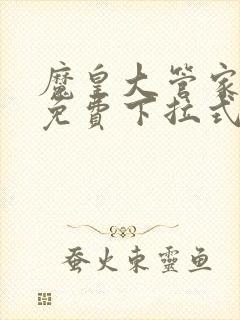 魔皇大管家
免費下拉式
蚕火東靈鱼